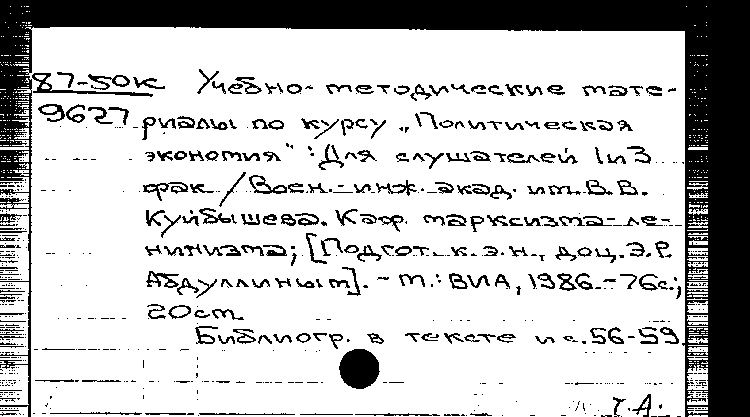 87-50к Учебно-методические мате-
9627 риалы по курсу „Политическая
экономия" : Для слушателей 1 и 3
фак / Воен.-инж. акад. им. В.В.
Куйбышева. Каф. марксизма-ле-
нинизма; [Подгот. к.э.н., доц. Э.Р.
Абдуллиным]. - М.: ВИА, 1986. - 76с.;
20см.
Библиогр. в тексте и с. 56-59.
Т.А.